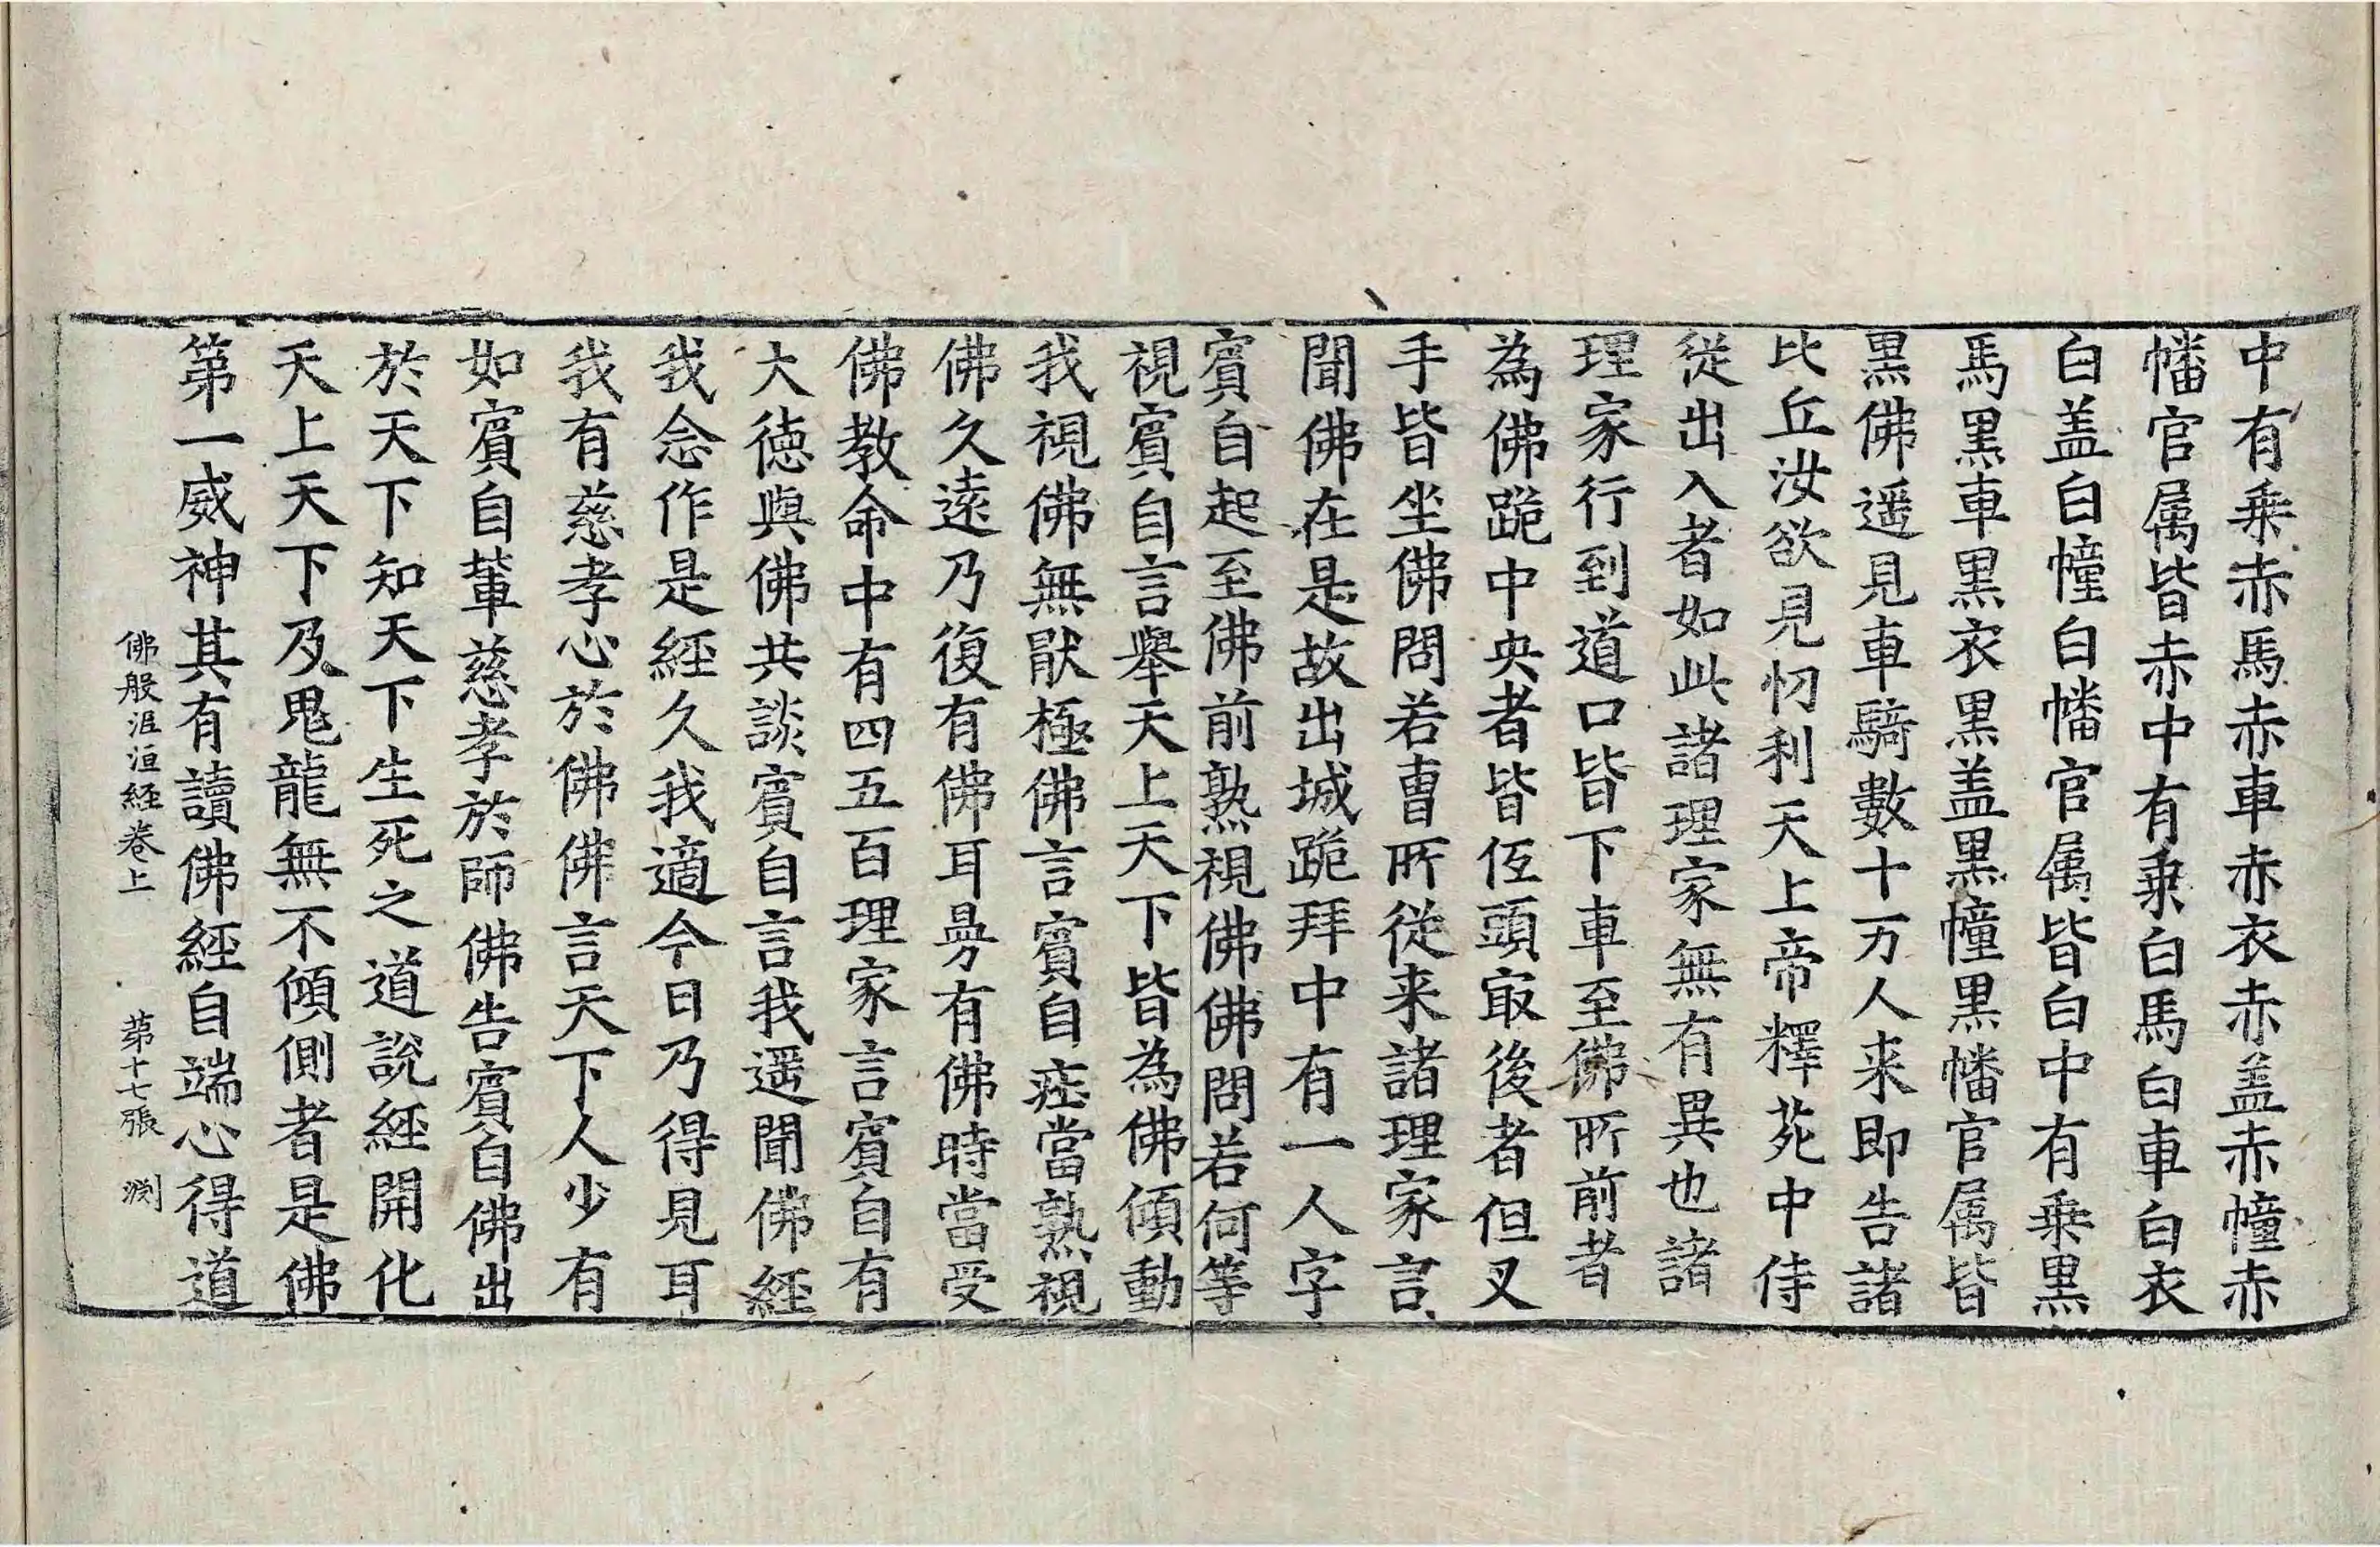 中有乗赤馬赤車赤衣赤盖赤幢赤
幡官属皆赤中有乗白馬白車白衣
白盖白幢白幡官属皆白中有乗黒
馬黒車黒衣黒盖黒幢黒幡官属皆
黒佛遥見車騎數十万人来即告諸
比丘汝欲見忉利天上帝釋苑中侍
従出入者如此諸理家無有異也諸
理家行到道口皆下車至佛所前者
為佛跪中央者皆低頭㝡後者但叉
手皆坐佛問若曹所従来諸理家言
聞佛在是故出城跪拜中有一人字
賔自起至佛前熟視佛佛問若何等
視賔自言擧天上天下皆為佛傾動
我視佛無猒極佛言賔自㽵當熟視
佛久遠乃復有佛耳㝵有佛時當受
佛教命中有四五百理家言賔自有
大徳與佛共談賔自言我遥聞佛経
我念作是経久我適今日乃得見耳
我有慈孝心於佛佛言天下人少有
如賔自輩慈孝於師佛告賔自佛出
於天下知天下生死之道説経開化
天上天下及鬼龍無不傾側者是佛
第一威神其有讀佛経自端心得道
佛般泥洹経卷上 第十七張 渕